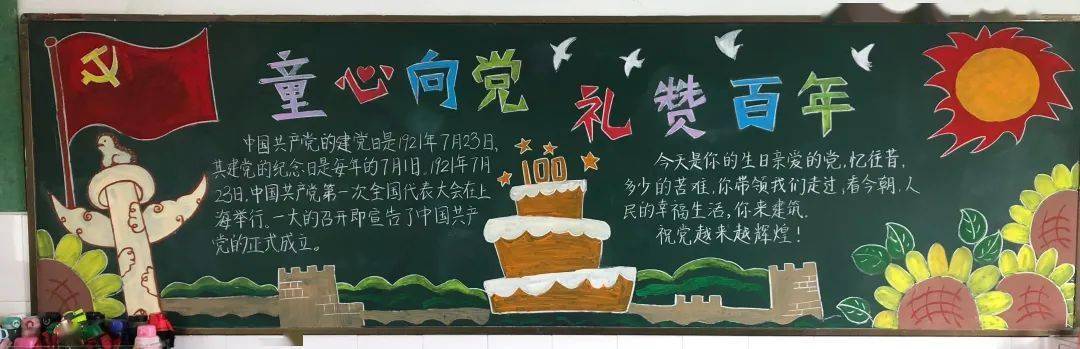 童心向党
礼赞百年
中国共产党的建党日是1921年7月23日,
其建党的纪念日是每年的7月1日,1921年7月
23日,中国共产党第一次全国代表大会在上
海举行。一大的召开即宣告了中国共产
党的正式成立。
100
今天是你的生日亲爱的党,忆往昔,
多少的苦难,你带领我们走过,看今朝,人
民的幸福生活,你来建筑.
祝党越来越辉煌!